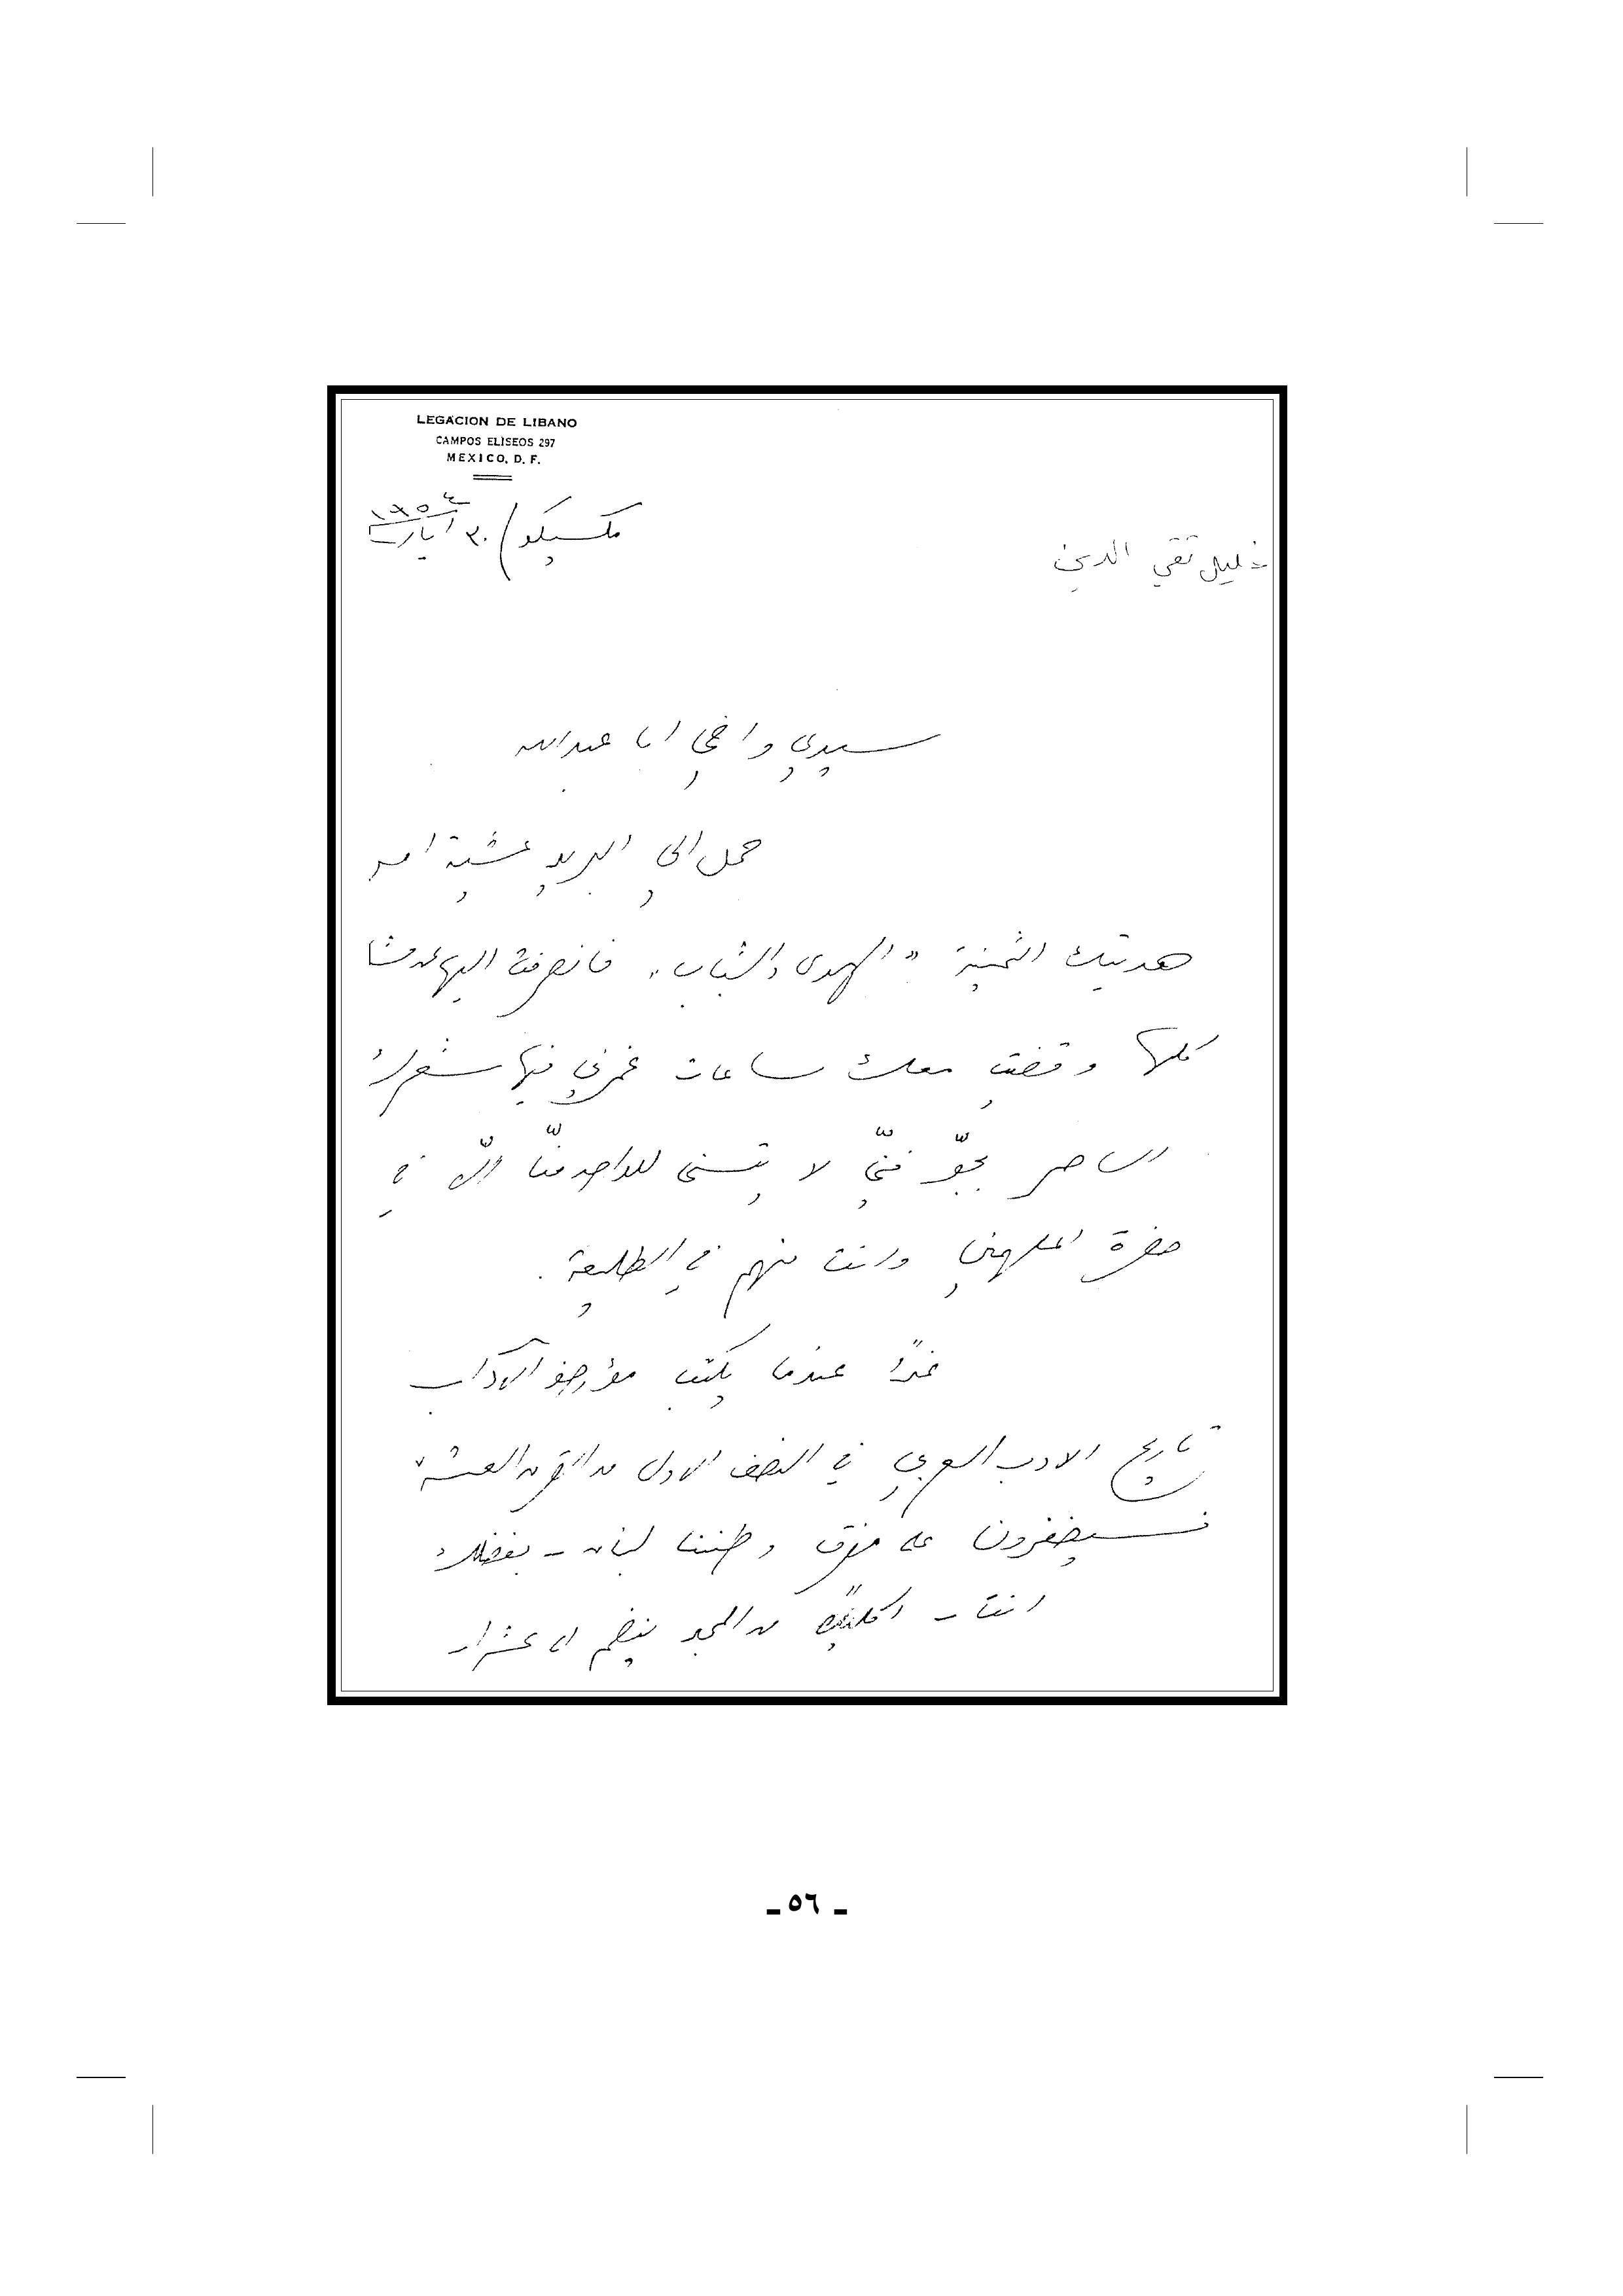 LEGACION DE LIBANO
CAMPOS ELISEOS 297
MEXICO, D. F.
مكسيكو / ٣٠ أيار ١٩٥٤
خليل تقي الدين
سيدي واخي ابا عبدالله
حمل الي البريد عشية امس
هديتك الثمينة "الهوى والشباب" فانصرفت اليها
كلها وقضيت معك ساعات غمرني فيها شعرك
الساحر بجوّ فنيّ لا يتسنى للواحد منّا الّا في
حضرة الملهمين وانت منهم في الطليعة .
غداً عندما يكتب مؤرخو الآداب
تاريخ الادب العربي في النصف الاول من القرن العشرين
فسيضفرون على مفرق وطننا لبنان ــ بفضلك
انت ــ اكليلاً من المجد ينضم الى عشرات
ـ ٥٦ ـ